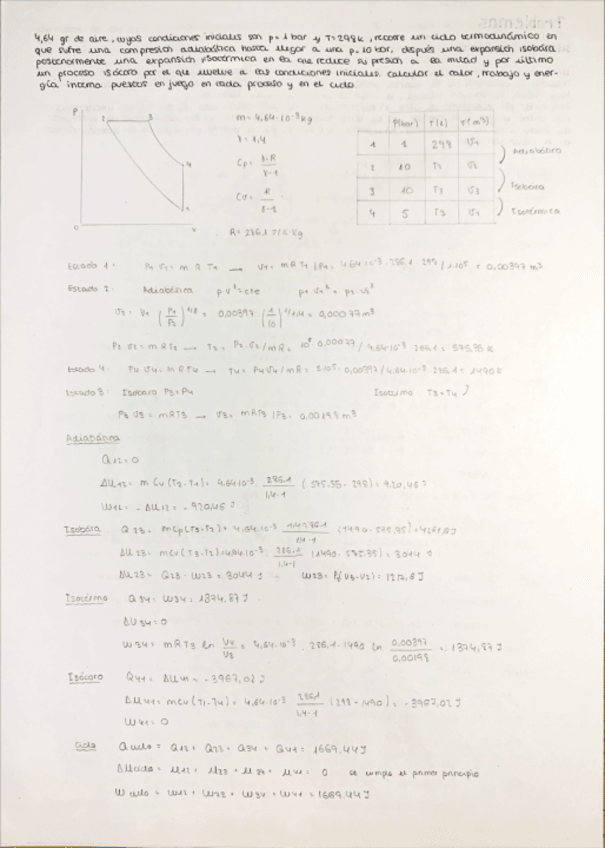 4,64 gr de aire, cuyas condiciones iniciales son p=1 bar y T=298k, recorre un ciclo termodinámico en
que sufre una compresión adiabática hasta llegar a una p. 10 bar, después una expansión isobára
posteriormente una expansión isotérmica en la que reduce su presión a la mitad y por último
un proceso isócoro por el que vuelve a las condiciones iniciales. calcular el calor, trabajo y ener-
gía interna puestos en juego en cada proceso y en el ciclo.
P
2 3
4
1
0 V
m = 4,64·10⁻³ kg
γ = 1,4
Cp = γ·R / γ-1
Cv = R / γ-1
R = 286.1 J/k·kg
P(bar) T(k) v(m³)
1 1 298 V1
2 10 T2 V2
3 10 T3 V3
4 5 T3 V4
Adiabática
Isobara
Isotérmica
Estado 1: P1 V1 = m R T1 → V1 = mRT1/P1 = 4,64·10⁻³·286.1·298/1·10⁵ = 0,00397 m³
Estado 2: Adiabática p v^γ = cte p1 v1^γ = p2 v2^γ
V2 = V1 (P1/P2)^1/γ = 0,00397 (1/10)^1/1,4 = 0,00077 m³
P2 V2 = mRT2 → T2 = P2·V2/mR = 10⁶·0,00077/4,64·10⁻³·286.1 = 575.35 k
Estado 4: P4 V4 = mRT4 → T4 = P4V4/mR = 5·10⁵·0,00397/4,64·10⁻³·286.1 = 1490 k
Estado 3: Isobara P3=P4 Isoterma T3=T4
P3 V3 = mRT3 → V3 = mRT3/P3 = 0,00198 m³
Adiabática
Q12=0
ΔU12 = m Cv (T2-T1) = 4,64·10⁻³ · 286.1/1,4-1 (575.35 - 298) = 920,46 J
W12 = -ΔU12 = -920,46 J
Isobára Q23 = mCp(T3-T2) = 4,64·10⁻³ 1,4·286.1/1,4-1 (1490-575.35) = 4261,6 J
ΔU23 = mCv(T3-T2) = 4,64·10⁻³ 286.1/1,4-1 (1490-575.35) = 3044 J
ΔU23 = Q23 - W23 = 3044 J W23 = P2(V3-V2) = 1217,6 J
Isotérmo Q34 = W34 = 1374,87 J
ΔU34=0
W34 = mRT3 ln V4/V3 = 4,64·10⁻³ · 286.1·1490 ln 0,00397/0,00198 = 1374,87 J
Isócoro Q41 = ΔU41 = -3967,02 J
ΔU41 = mCv(T1-T4) = 4,64·10⁻³ 286.1/1,4-1 (298-1490) = -3967,02 J
W41 = 0
Ciclo Q ciclo = Q12 + Q23 + Q34 + Q41 = 1669,44 J
ΔU ciclo = U12 + U23 + U34 + U41 = 0 se cumple el primer principio
W ciclo = W12 + W23 + W34 + W41 = 1669,44 J